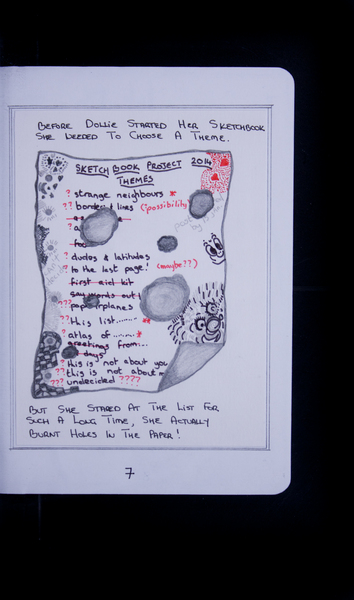 BEFORE DOLLIE STARTED HER SKETCHBOOK
SHE NEEDED TO CHOOSE A THEME..
SKETCHBOOK PROJECT 2014
THEMES
? strange neighbours *
?? borders & lines (?possibility)
? a
foo
? dudes & latitudes
? to the last page! (maybe??)
first aid kit
say words out l
??? paper airplanes
?? this list....... **
? atlas of ....... *
greetings from...
days
? this is not about you
?? this is not about m
??? undecided ????
BUT SHE STARED AT THE LIST FOR
SUCH A LONG TIME, SHE ACTUALLY
BURNT HOLES IN THE PAPER!
7